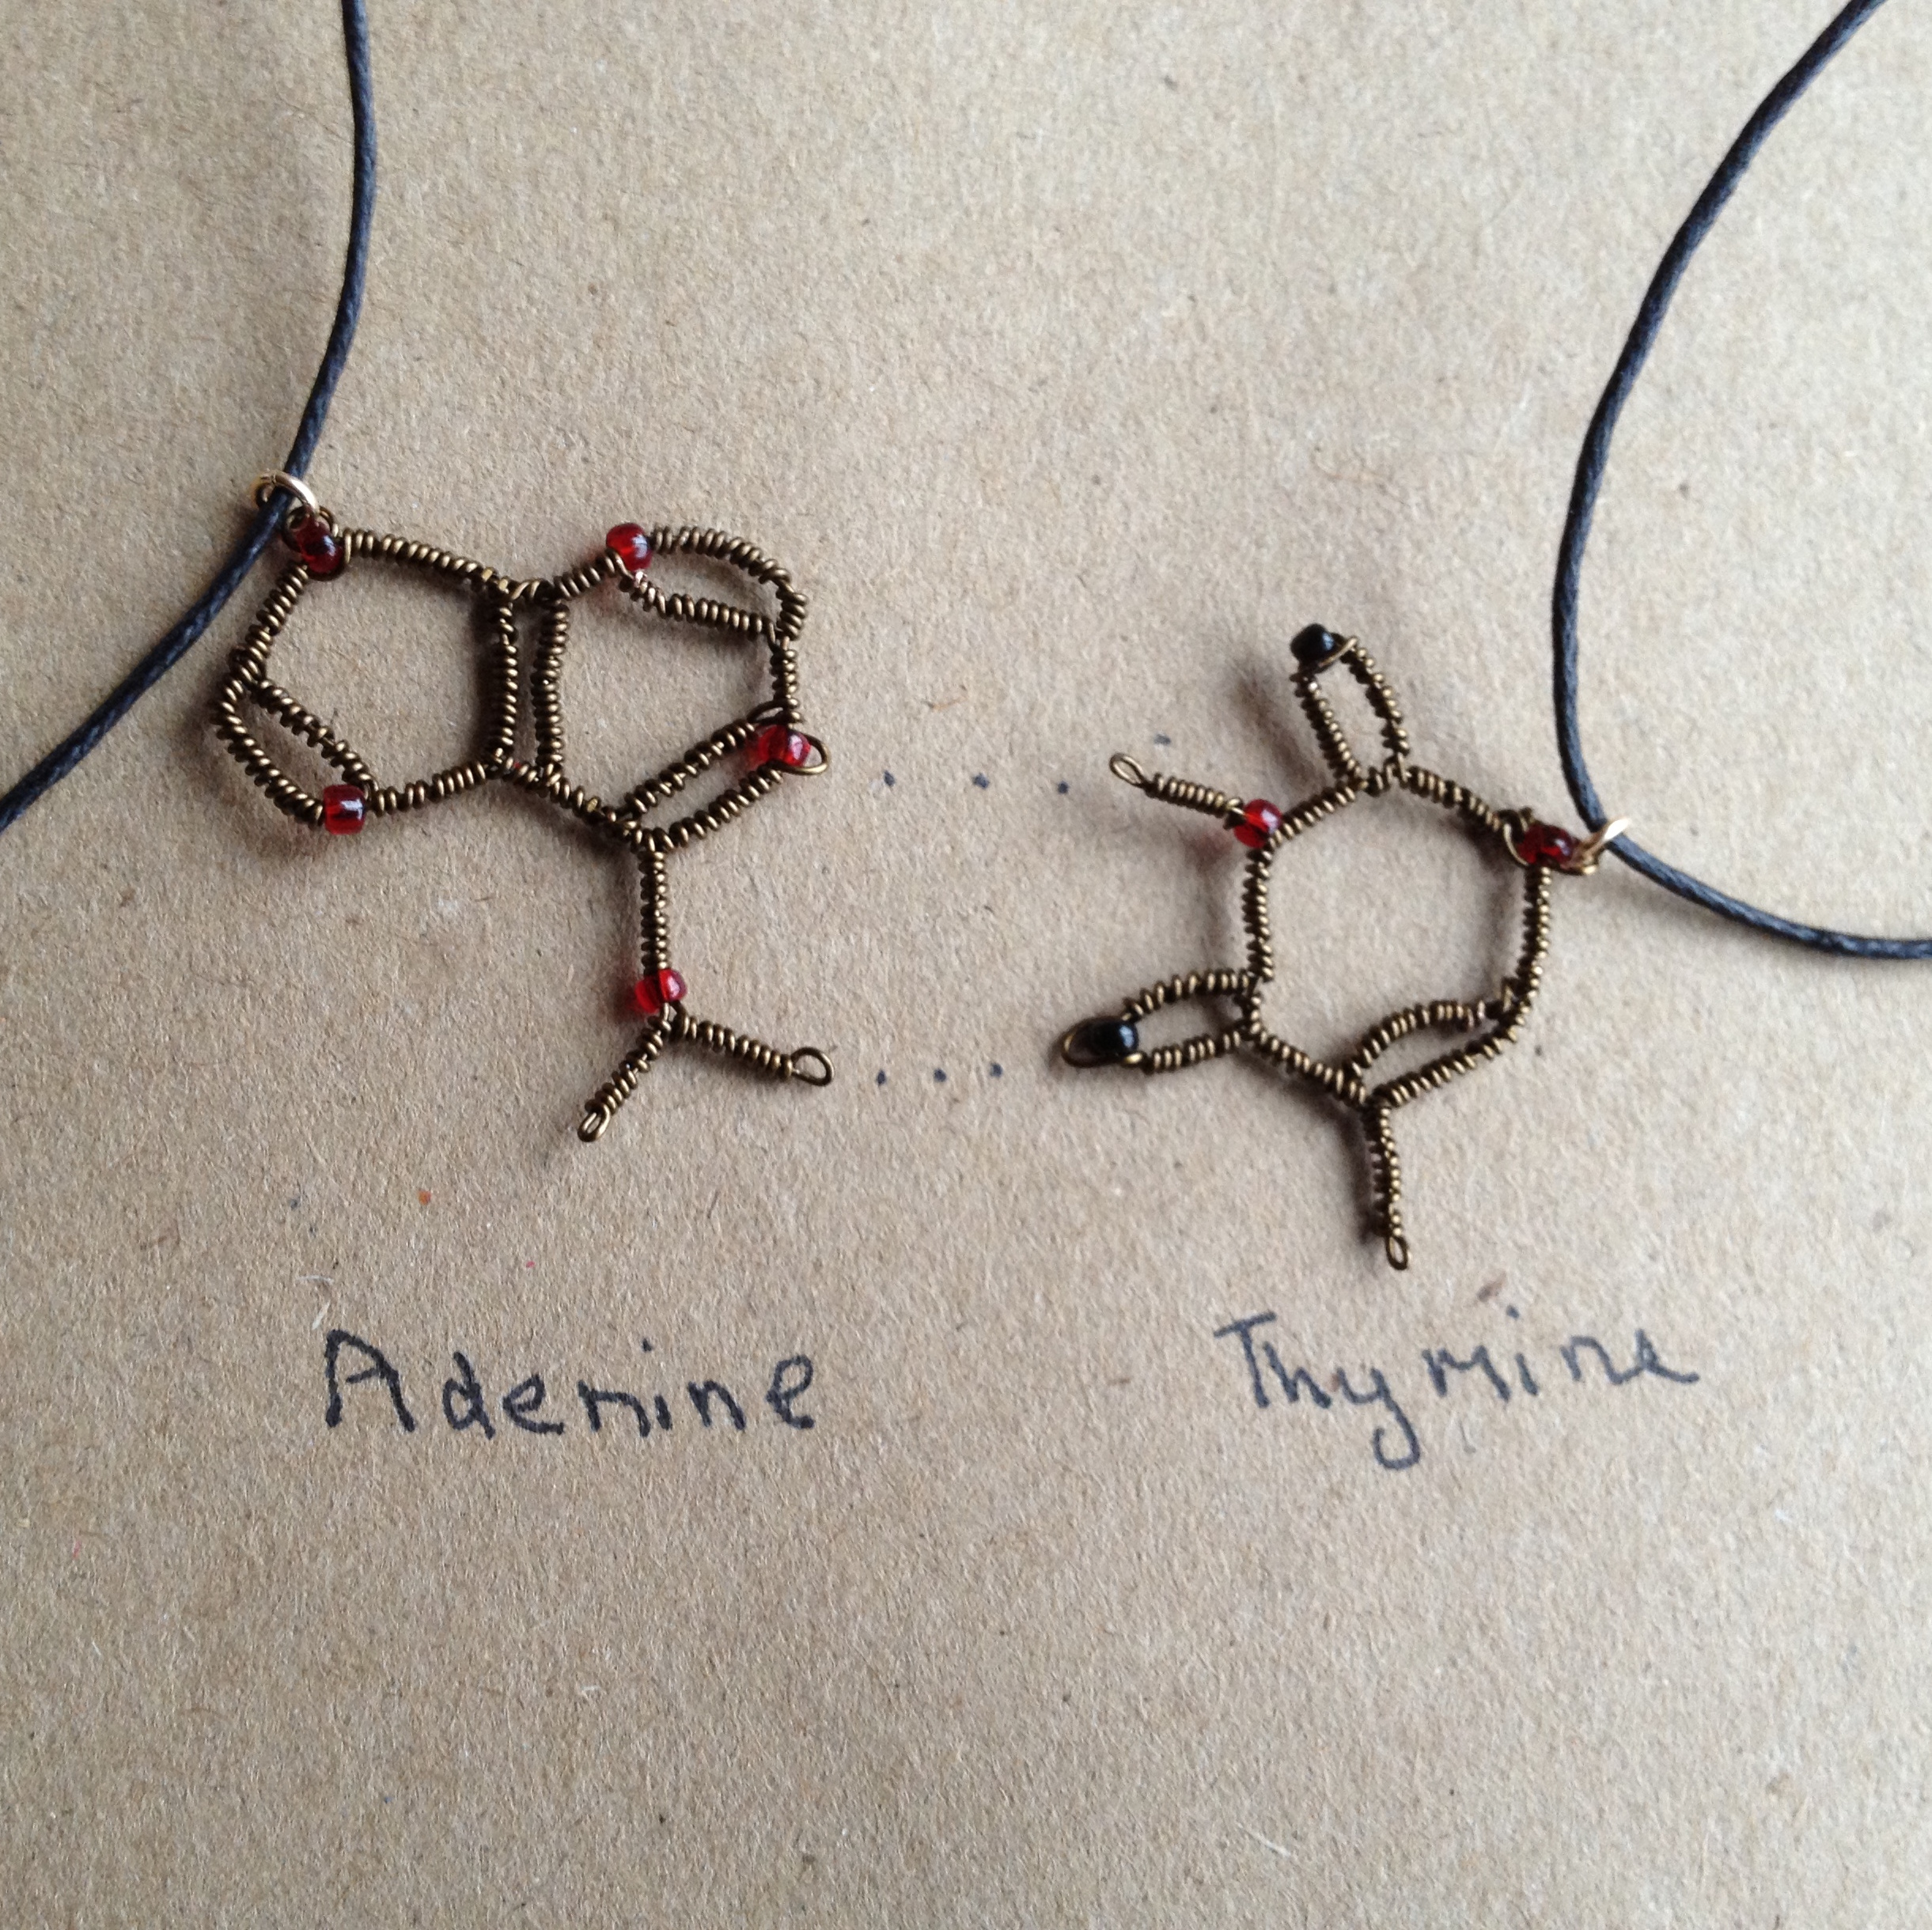 Adenine
Thymine